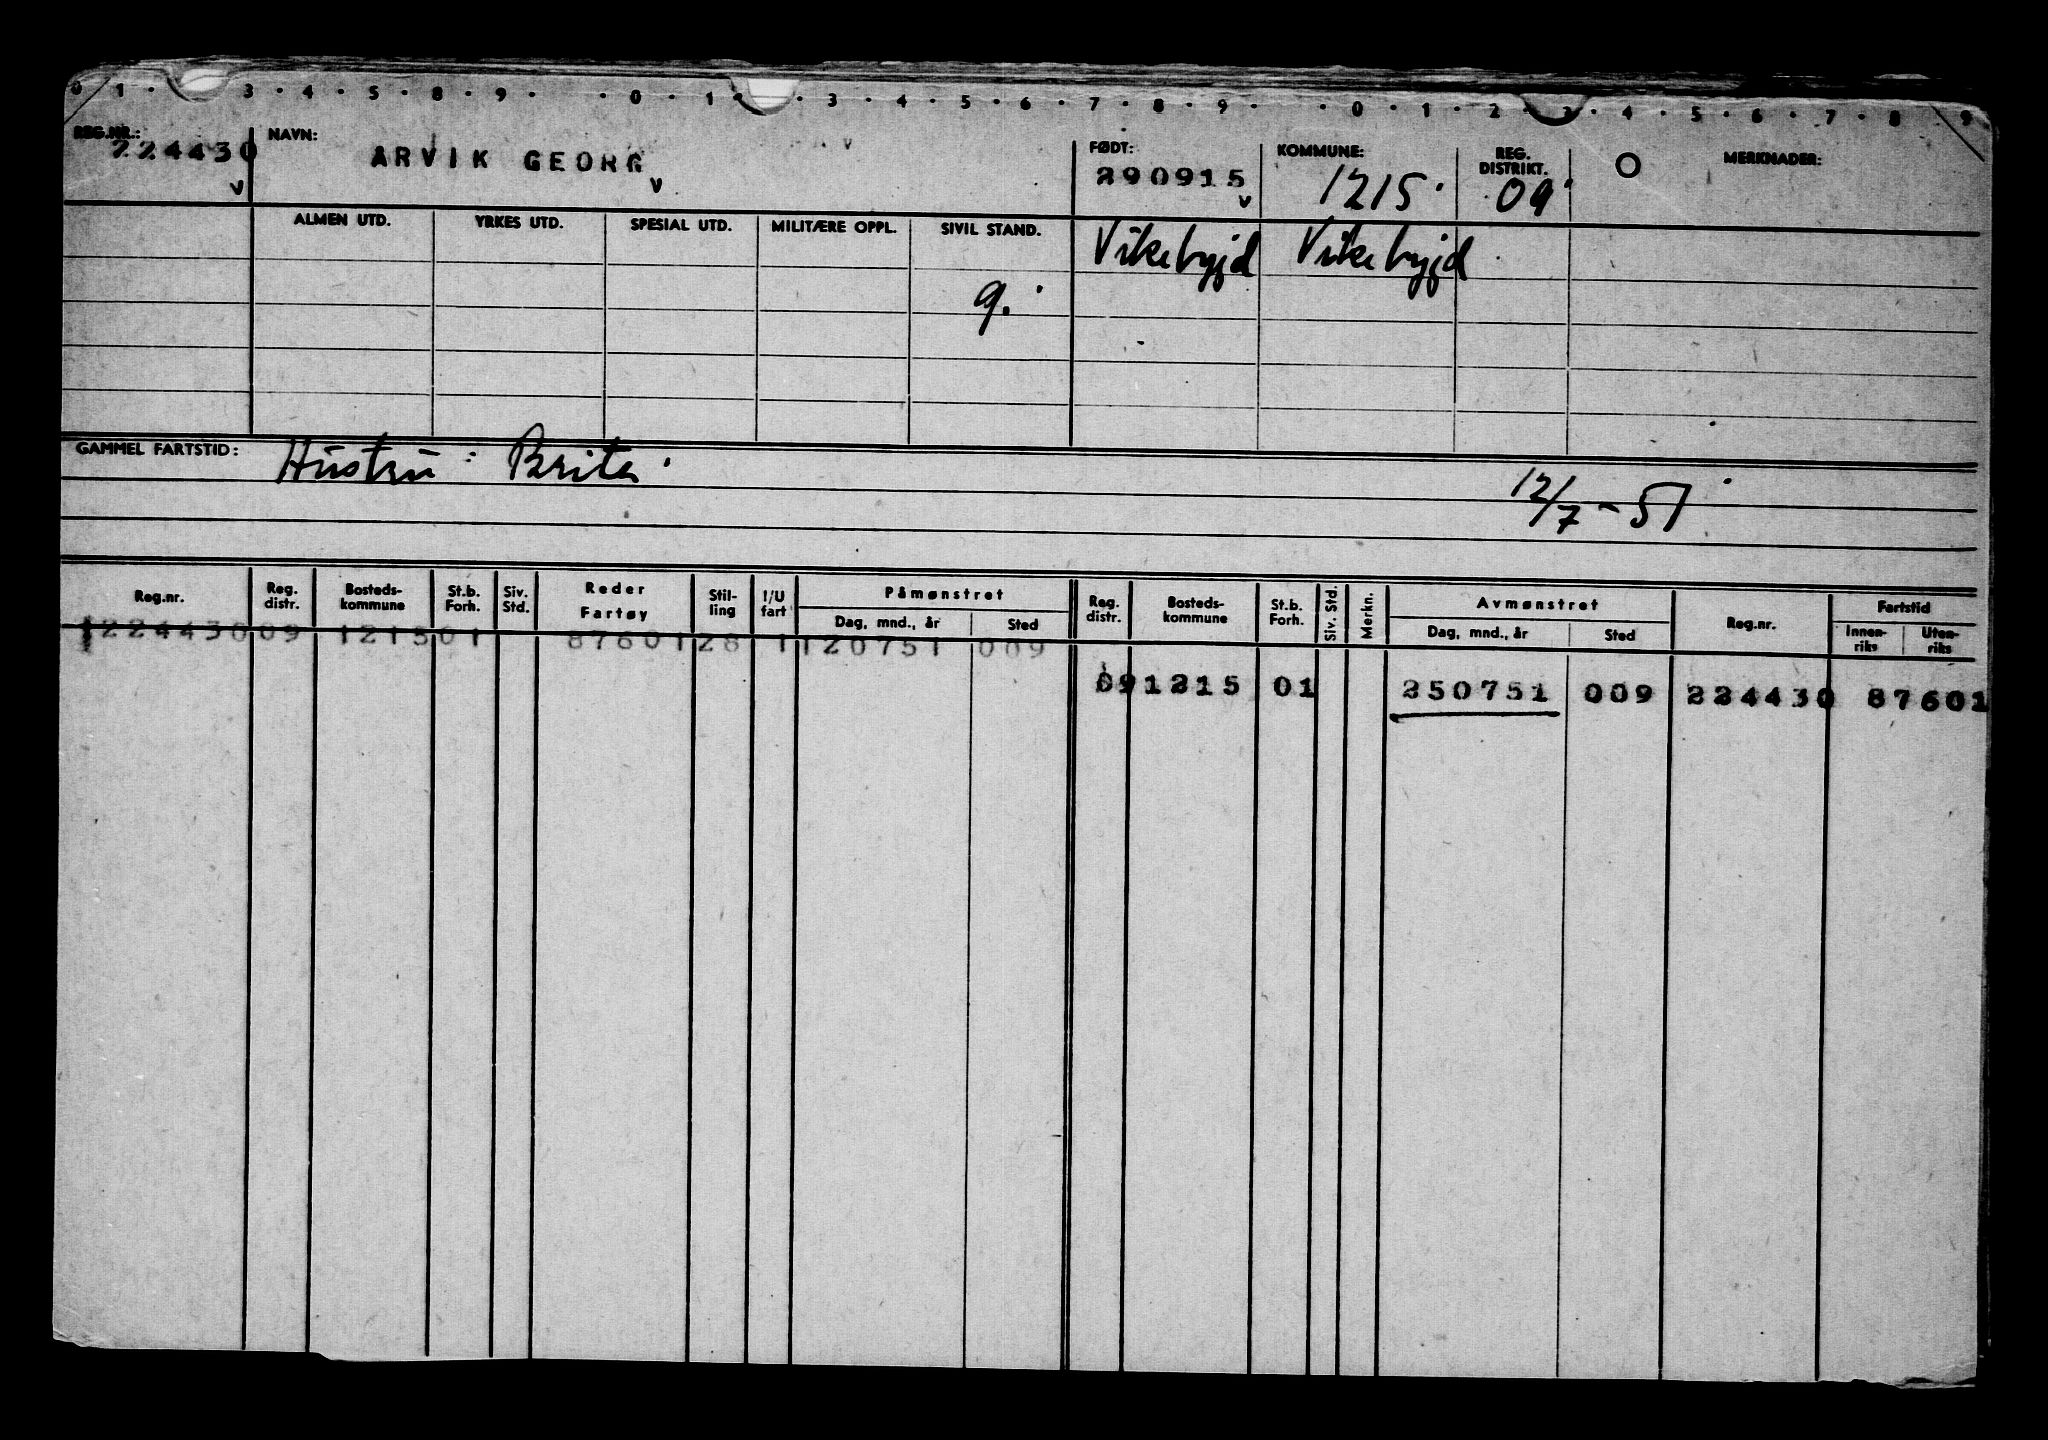 0 1 · 3 · 4 · 5 · 8 · 9 · · 0 · 1 · · 3 · 4 · 5 · 6 · 7 · 8 · 9 · · 0 · 1 · 2 · 3 · 4 · 5 · 6 · 7 · 8 · 9
REG.NR.: NAVN: FØDT: KOMMUNE: REG. DISTRIKT. O MERKNADER:
224430 ARVIK GEORG 290915 1215 09
v v v v
ALMEN UTD. YRKES UTD. SPESIAL UTD. MILITÆRE OPPL. SIVIL STAND. Vikebygd Vikebygd
g.
GAMMEL FARTSTID: Hustru: Brita
12/7-51
Reg.nr. Reg. distr. Bosteds-kommune St.b. Forh. Siv. Std. Reder Fartøy Stil-ling I/U fart Påmønstret Dag, mnd., år Sted Reg. distr. Bosteds-kommune St.b. Forh. Siv. Std. Merkn. Avmønstret Dag, mnd., år Sted Reg.nr. Fartstid Innen-riks Uten-riks
1224430 09 1215 01 87601 28 1 120751 009
09 1215 01 250751 009 224430 87601